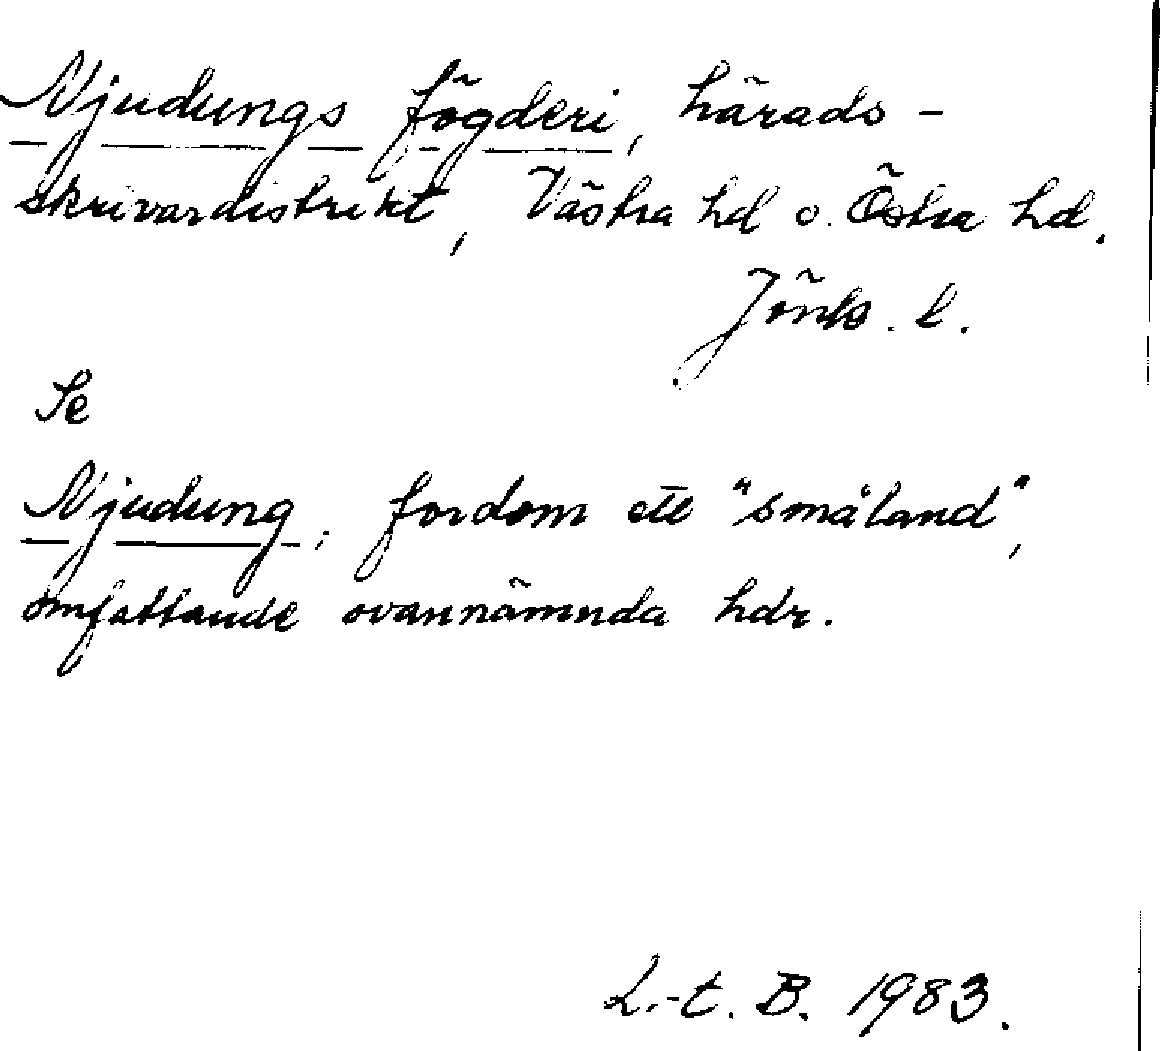 Njudungs fögderi, härads-
skrivardistrikt, Västra hd o. Östra hd.
Jönk. l.
Se
Njudung, fordom ett "småland",
omfattande ovannämnda hdr.
L.-t. B. 1983.